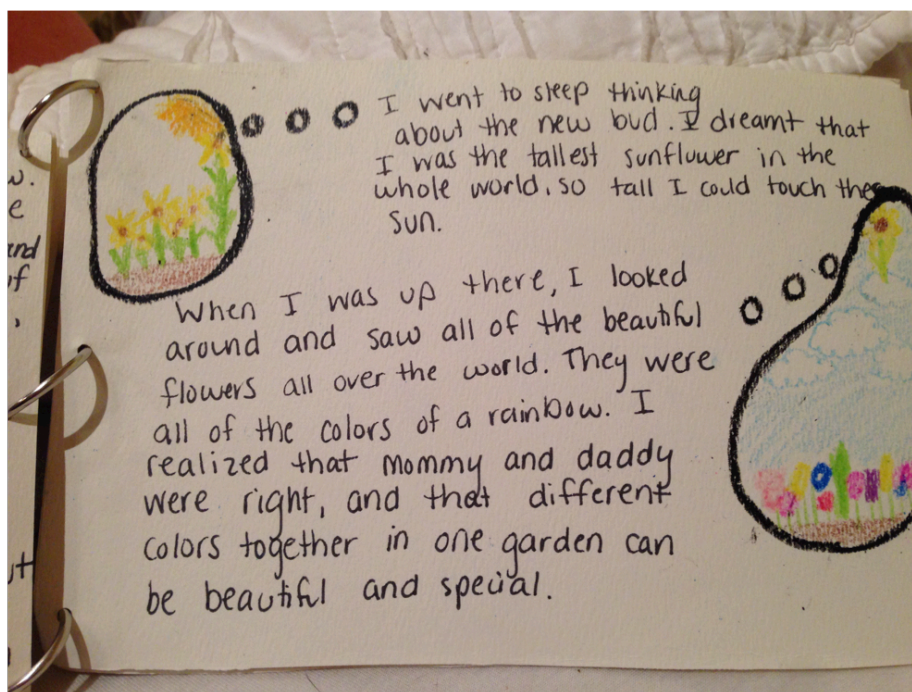 w.
e
and
of
,
I went to sleep thinking
about the new bud. I dreamt that
I was the tallest sunflower in the
whole world, so tall I could touch the
sun.
When I was up there, I looked
around and saw all of the beautiful
flowers all over the world. They were
all of the colors of a rainbow. I
realized that mommy and daddy
were right, and that different
colors together in one garden can
be beautiful and special.